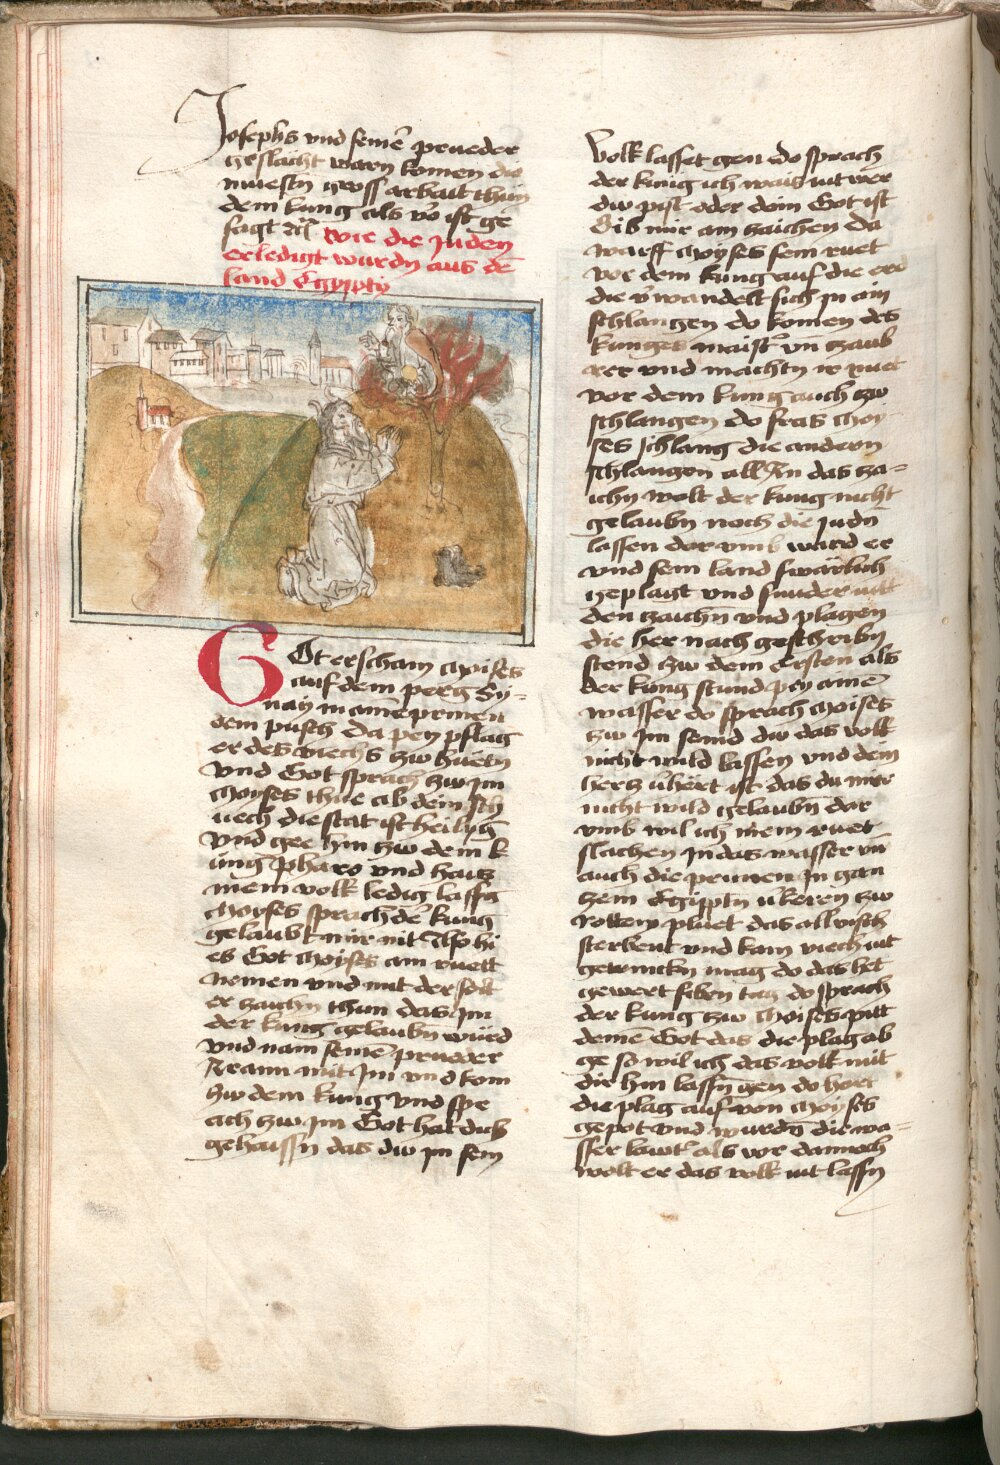 Josephs vnd seinē prueder
geslacht warn komen die
muestn gross arbait thun
dem kung als vor ist ge
sagt etc̃ wie die Juden
erledigt wurdn aus dē
land Egypty
GOt erscham Moises
auf dem perg Sy-
nay in amē prinen
dem pusch da pey pflag
er des viechs zw hüetn
vnd Got sprach zw im
Moyses thue ab dein sch
uech die stat ist heilig
vnd gee hin zw dem k
ung Pharo vnd haiz
mein volk ledig lassn
Moyses sprach der kung
gelaubt mir nit Also hi
es Got Moyses ain ruett
nemen vnd mit der solt
er zaichn thun das im
der kung gelaubn würd
vnd nam seinē prueder
Araon mit Im vnd kom
zw dem kung vnd spr
ach zw im Got hat dich
gehaissn das dw im sein
Volk lasset gen do sprach
der kunig ich wais nit wer
dw pist oder dein Got ist
Gib mir ain zaichen Da
warff Moyses sein ruet
vor dem kung auf die erd
die v̄wandelt sich in ain
schlangen do komen des
kunges maist̄ vn̄ zaub
rer vnd machtn ir ruet
vor dem kung auch zw
schlangen do fras Moy
ses schlang die andern
schlangen all In das za-
ichn wolt der kung nicht
gelaubn noch die Judn
lassen dar vmb ward er
vnd sein land swärlich
geplagt vnd sunder mit
den zaichn vnd plagen
die her nach geschribn
stend zw dem Ersten als
der kung stund pey amē
wasser do sprach Moises
zw im seind dw das volk
nicht wild lassen vnd dein
hertz v̄hert ist das du mir
nicht wild gelaubn̄ dar
vmb wil ich mein ruet
slachen in das wasser vn̄
auch die prunen in gan
zem Egiptn v̄keren zw
rottem pluet das all visch
sterbent vnd kain viech nit
gewinekn mag do das het
gewert siben tag do sprach
der kung zw Moises pitt
deinē Got das die plag ab
ge so wil ich das volk mit
dir hin lassn̄ gen do hort
die plag auf von Moyses
gepot vnd wurdn̄ die wa-
sser lawt̄ als vor dannoch
wolt er das volk nit lassn